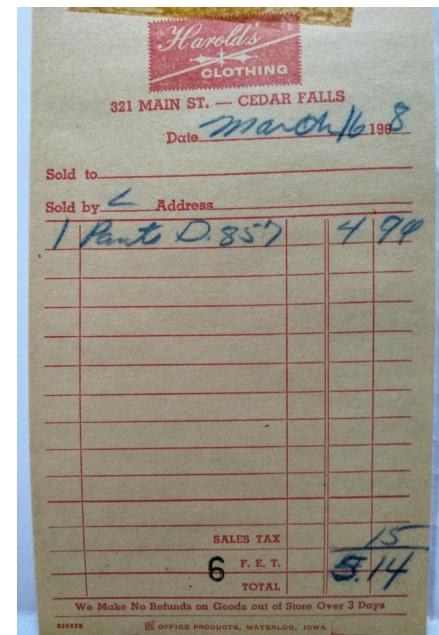 Harold's
CLOTHING
321 MAIN ST. — CEDAR FALLS
Date March 16 1968
Sold to
Sold by L Address
1 Pants D. 857 4 99
SALES TAX 15
6 F. E. T.
TOTAL 5.14
We Make No Refunds on Goods out of Store Over 3 Days
OFFICE PRODUCTS, WATERLOO, IOWA